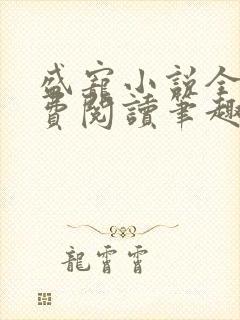 盛寵小說全
費閱讀筆趣
龍霄霄